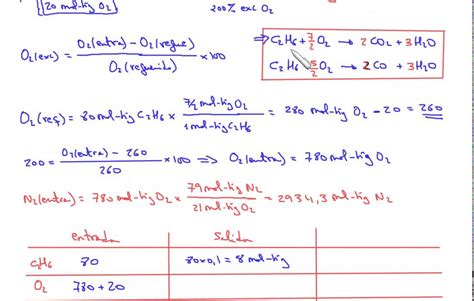 20 mol-kg O₂
200% exc O₂
O₂(exc) = (O₂(entra) - O₂(reque)) / O₂(requerido) × 100
⇒ C₂H₆ + 7/2 O₂ → 2 CO₂ + 3 H₂O
C₂H₆ 5/2 O₂ → 2 CO + 3 H₂O
O₂(req) = 80 mol-kg C₂H₆ × (7/2 mol-kg O₂) / (1 mol-kg C₂H₆) = 280 mol-kg O₂ - 20 = 260
200 = (O₂(entra) - 260) / 260 × 100 ⇒ O₂(entra) = 780 mol-kg O₂
N₂(entra) = 780 mol-kg O₂ × (79 mol-kg N₂) / (21 mol-kg O₂) = 2934,3 mol-kg N₂
entrada Salida
C₂H₆ 80 80×0,1 = 8 mol-kg
O₂ 780 + 20